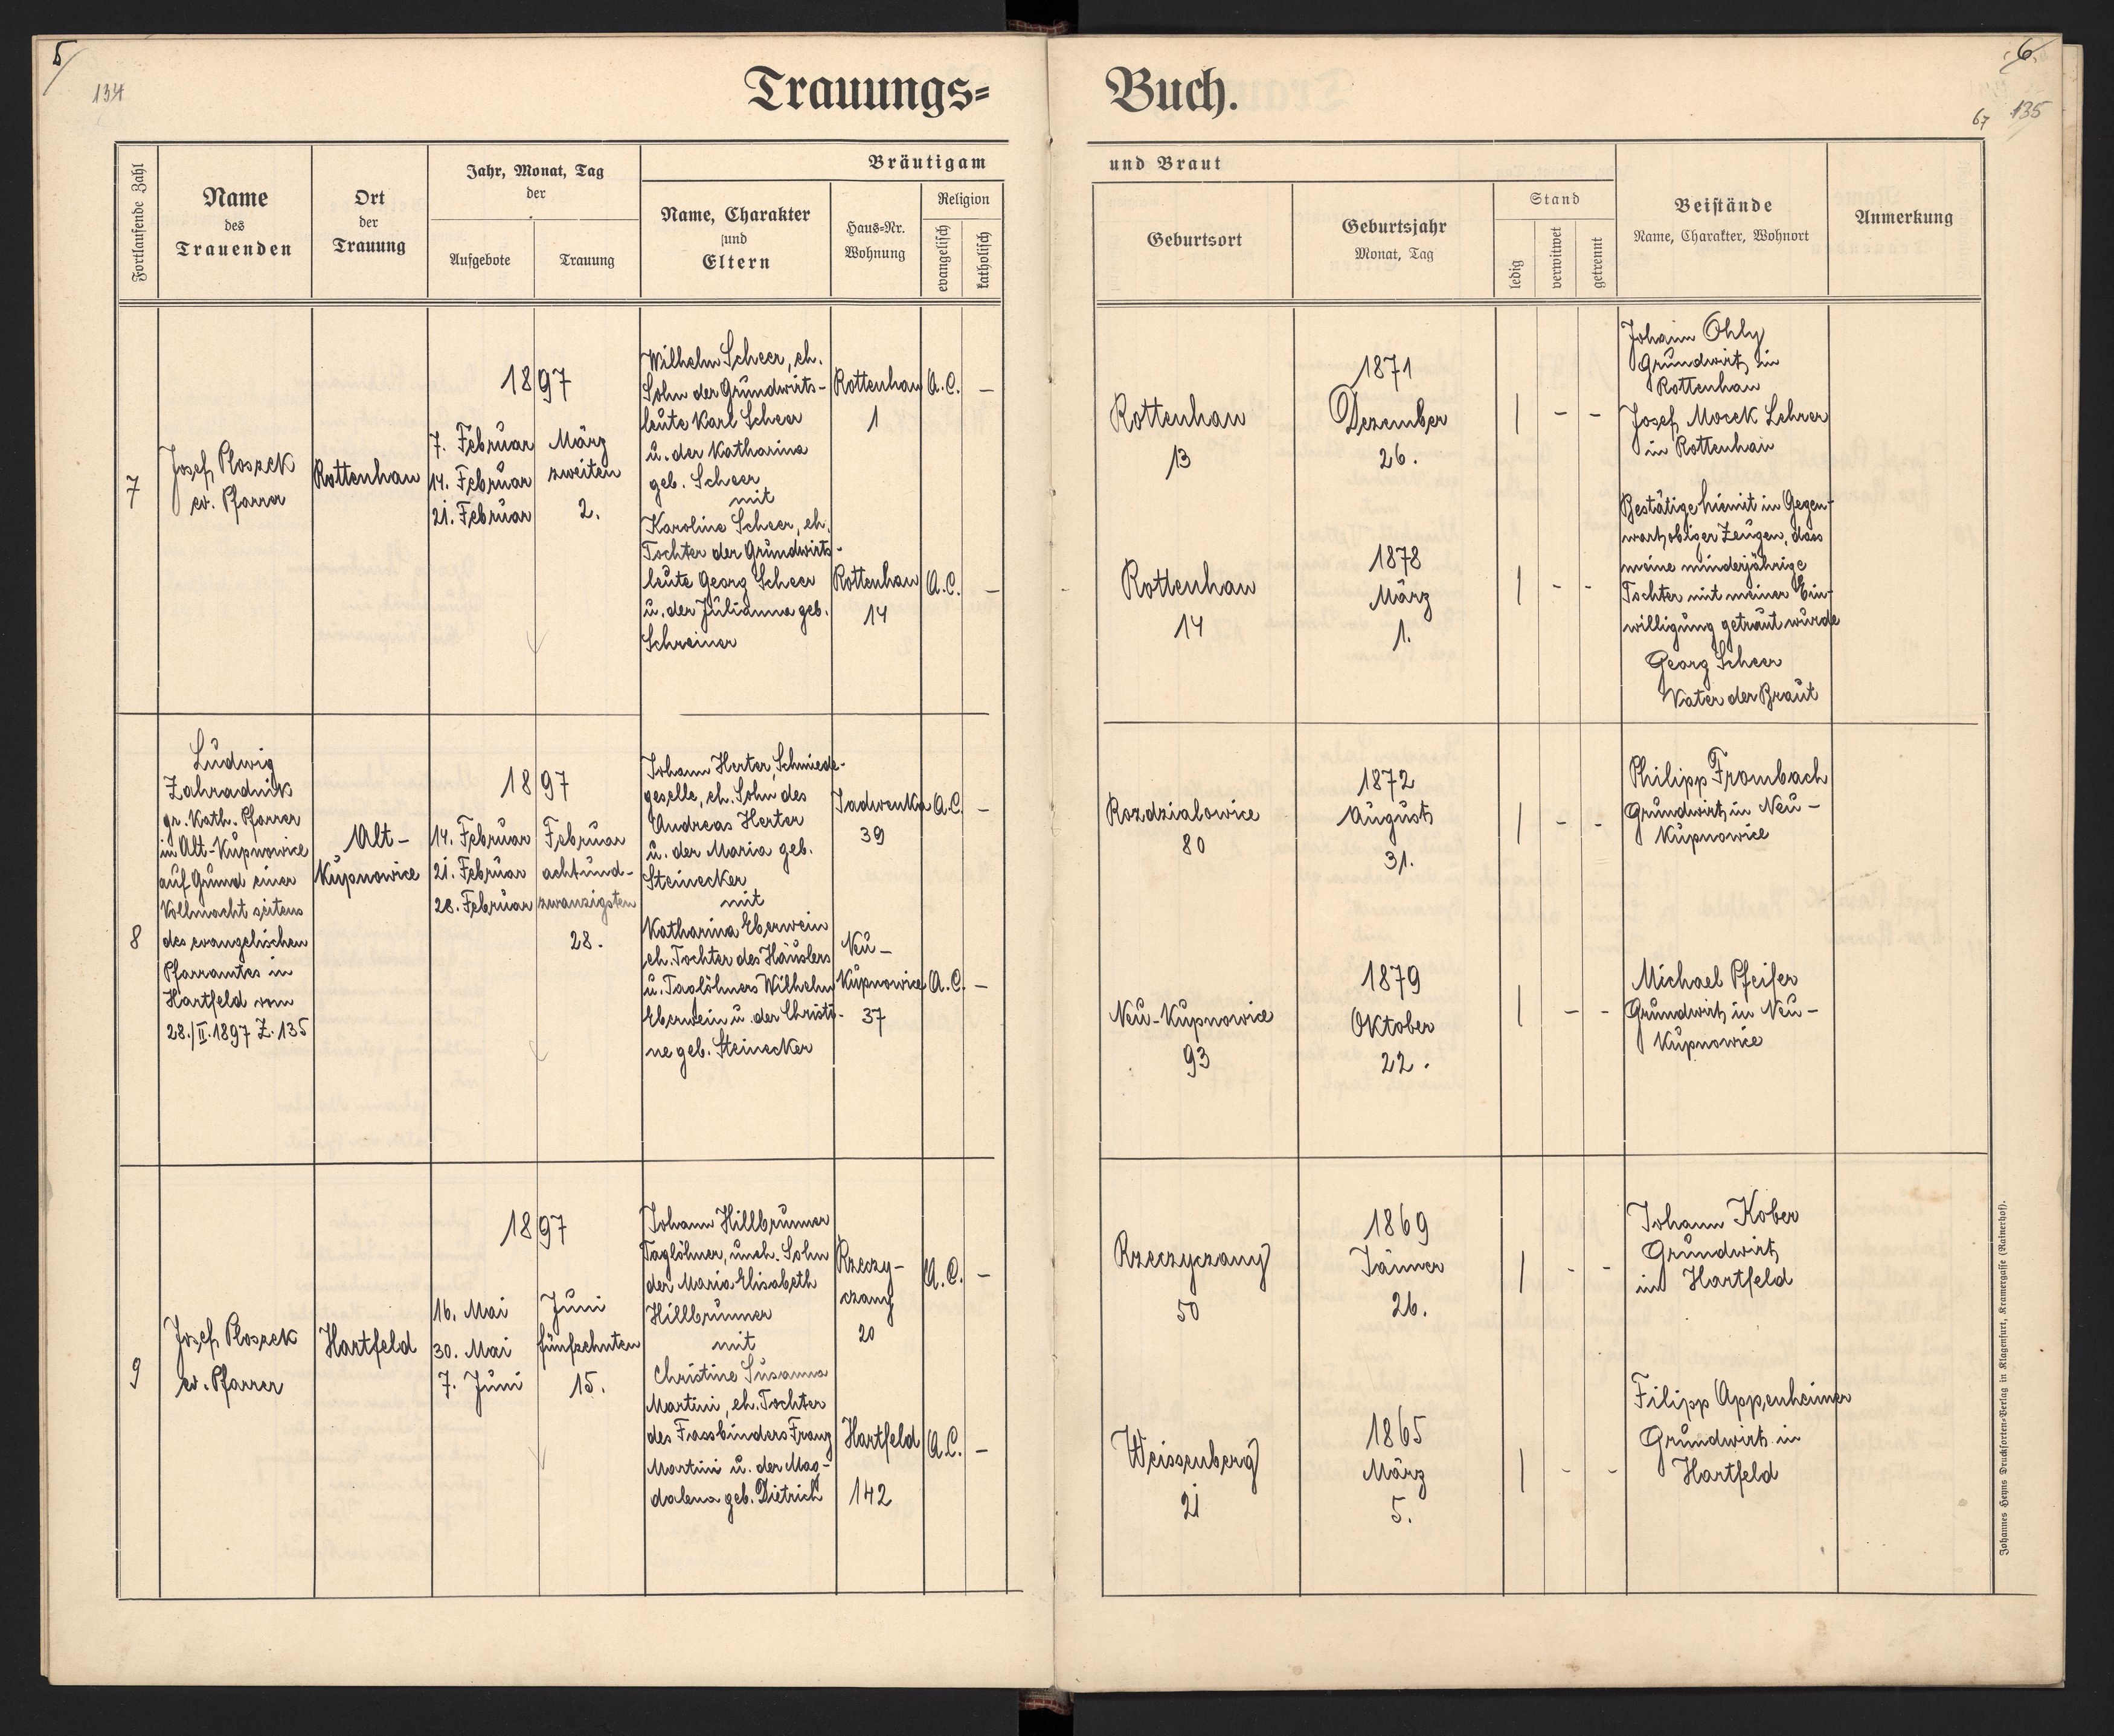 5/
134
Trauungs=
Fortlaufende Zahl
Name
des
Trauenden
Ort
der
Trauung
Jahr, Monat, Tag
der
Aufgebote
Trauung
Bräutigam
Name, Charakter
und
Eltern
Haus=Nr.
Wohnung
Religion
evangelisch
katholisch
7
Josef Ploszek
ev. Pfarrer
Rottenhan
1897
7. Februar
14. Februar
21. Februar
März
zweiten
2.
Wilhelm Scheer, eh.
Sohn der Grundwirts-
leute Karl Scheer
u. der Katharina
geb. Scheer
mit
Karoline Scheer, eh.
Tochter der Grundwirts-
leute Georg Scheer
u. der Julianna geb.
Schreiner
Rottenhan
1
A.C. –
Rottenhan
14
A.C. –
8
Ludwig
Zahradnik
gr. Kath. Pfarrer
in Alt-Kupnowice
auf Grund einer
Vollmacht seitens
des evangelischen
Pfarramtes in
Hartfeld vom
28./II. 1897 Z. 135
Alt-
Kupnowice
1897
14. Februar
21. Februar
28. Februar
Februar
achtund-
zwanzigsten
28.
Johann Herter, Schmiede-
geselle, eh. Sohn des
Andreas Herter
u. der Maria geb.
Steinecker
mit
Katharina Eberwein
eh. Tochter des Häuslers
u. Taglöhners Wilhelm
Eberwein u. der Christi-
ne geb. Steinecker
Sadwenka
39
A.C. –
Neu-
Kupnowice
37
A.C. –
9
Josef Ploszek
ev. Pfarrer
Hartfeld
1897
16. Mai
30. Mai
7. Juni
Juni
fünfzehnten
15.
Johann Hillbrunner
Taglöhner, uneh. Sohn
der Maria Elisabeth
Hillbrunner
mit
Christine Susanna
Martini, eh. Tochter
des Fassbinders Franz
Martini u. der Mag-
dalena geb. Dietrich
Rzeczy-
czany
20
A.C. –
Hartfeld
142
A.C. –
6.
67 135
Buch.
und Braut
Geburtsort
Geburtsjahr
Monat, Tag
Stand
ledig
verwitwet
getrennt
Beistände
Name, Charakter, Wohnort
Anmerkung
Rottenhan
13
1871
Dezember
26.
| – –
Johann Ohly
Grundwirt in
Rottenhan
Josef Mocek Lehrer
in Rottenhan
Rottenhan
14
1878
März
1.
| – –
Bestätige hiemit in Gegen-
wart obiger Zeugen, dass
meine minderjährige
Tochter mit meiner Ein-
willigung getraut wurde
Georg Scheer
Vater der Braut
Rozdzialowice
80
1872
August
31.
| – –
Philipp Frombach
Grundwirt in Neu-
Kupnowice
Neu-Kupnowice
93
1879
Oktober
22.
| – –
Michael Pfeifer
Grundwirt in Neu-
Kupnowice
Rzeczyczany
50
1869
Jänner
26.
| – –
Johann Kober
Grundwirt
in Hartfeld
Weissenberg
21
1865
März
5.
| – –
Filipp Appenheimer
Grundwirt in
Hartfeld
Johannes Heyns Drucksorten=Verlag in Klagenfurt, Kramergasse (Rainerhof).